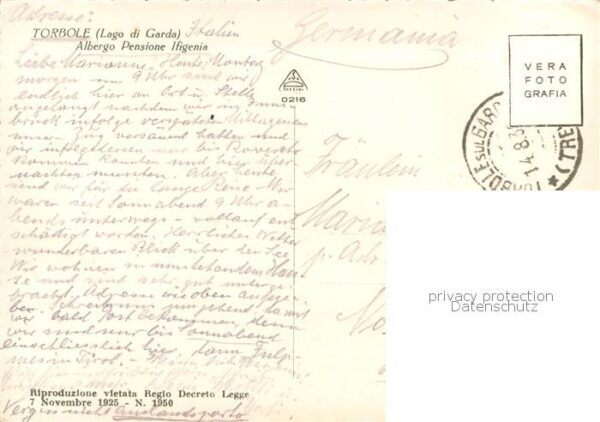 Adresse:
TORBOLE (Lago di Garda) Italien
Albergo Pensione Ifigenia
Germania
VERA
FOTO
GRAFIA
0216
Liebe Marianne. Heute, Montag
morgen um 9 Uhr sind wir
endlich hier an Ort u. Stelle
angelangt nachdem wir in Inns-
bruck infolge verspäteten Mittagessens
unsern Zug versäumt hatten und
wir infolgedessen nur bis Rovereto
kommen konnten und hier über
nachten mussten. Aber heute
sind wir für die lange Reise. Wir
waren seit Sonnabend 9 Uhr a-
bends unterwegs - vollauf ent-
schädigt worden. Herrliches Wetter
wunderbaren Blick über den See
Wir wohnen in umstehendem Hau-
se und sind sehr gut unterge-
bracht. Adresse wie oben angege-
ben. Schreib umgehend, damit
wir bald Post bekommen, denn
wir sind nur bis Sonnabend
einschliesslich hier, dann Fulp-
mes in Tirol.
Fräulein
p. Adr
TORBOLE SUL GARDA
14.8.33
(TRE
privacy protection
Datenschutz
Riproduzione vietata Regio Decreto Legge
7 Novembre 1925 - N. 1950
Vergiss nicht Auslandsporto